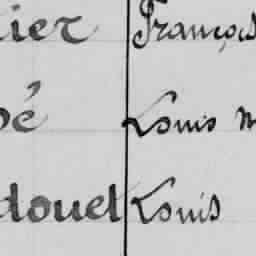 ier François
bé Louis m
douet Louis